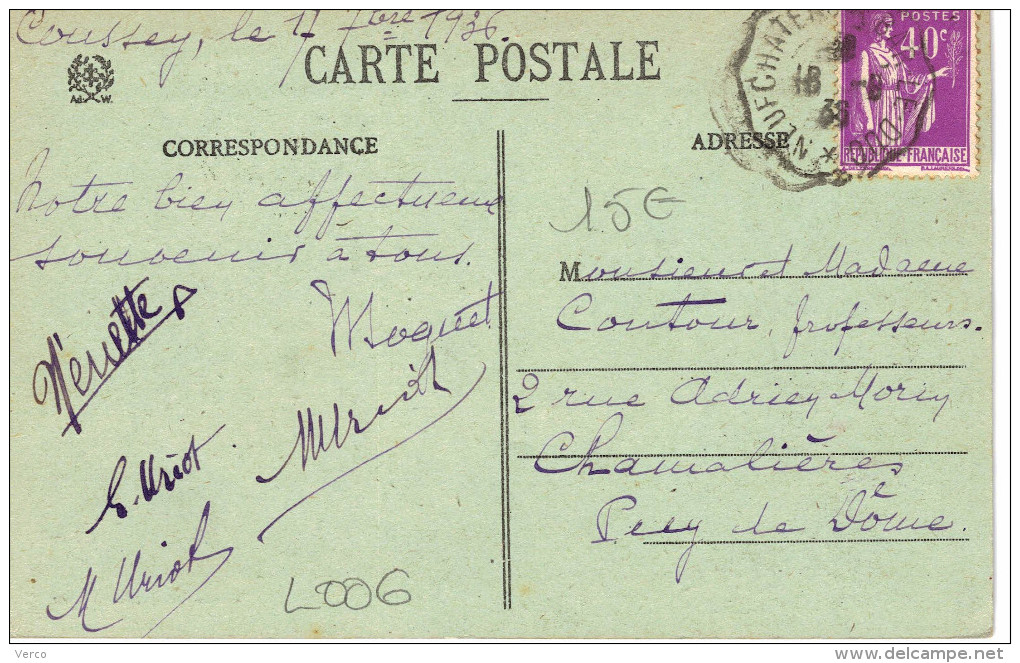 Coussey, le 17 7bre 1936
CARTE POSTALE
Ad. W.
CORRESPONDANCE
ADRESSE
POSTES
40c
REPUBLIQUE FRANÇAISE
NEUFCHATEAU
18 -9
36
15€
Notre bien affectueux
souvenir à tous.
Nénette
Moquet
E. Uriot
M Uriot
L006
Monsieur et Madame
Contour, professeurs.
2 rue Adrien Morey
Chamalières
Puy de Dôme.
Verco
delcampe.net